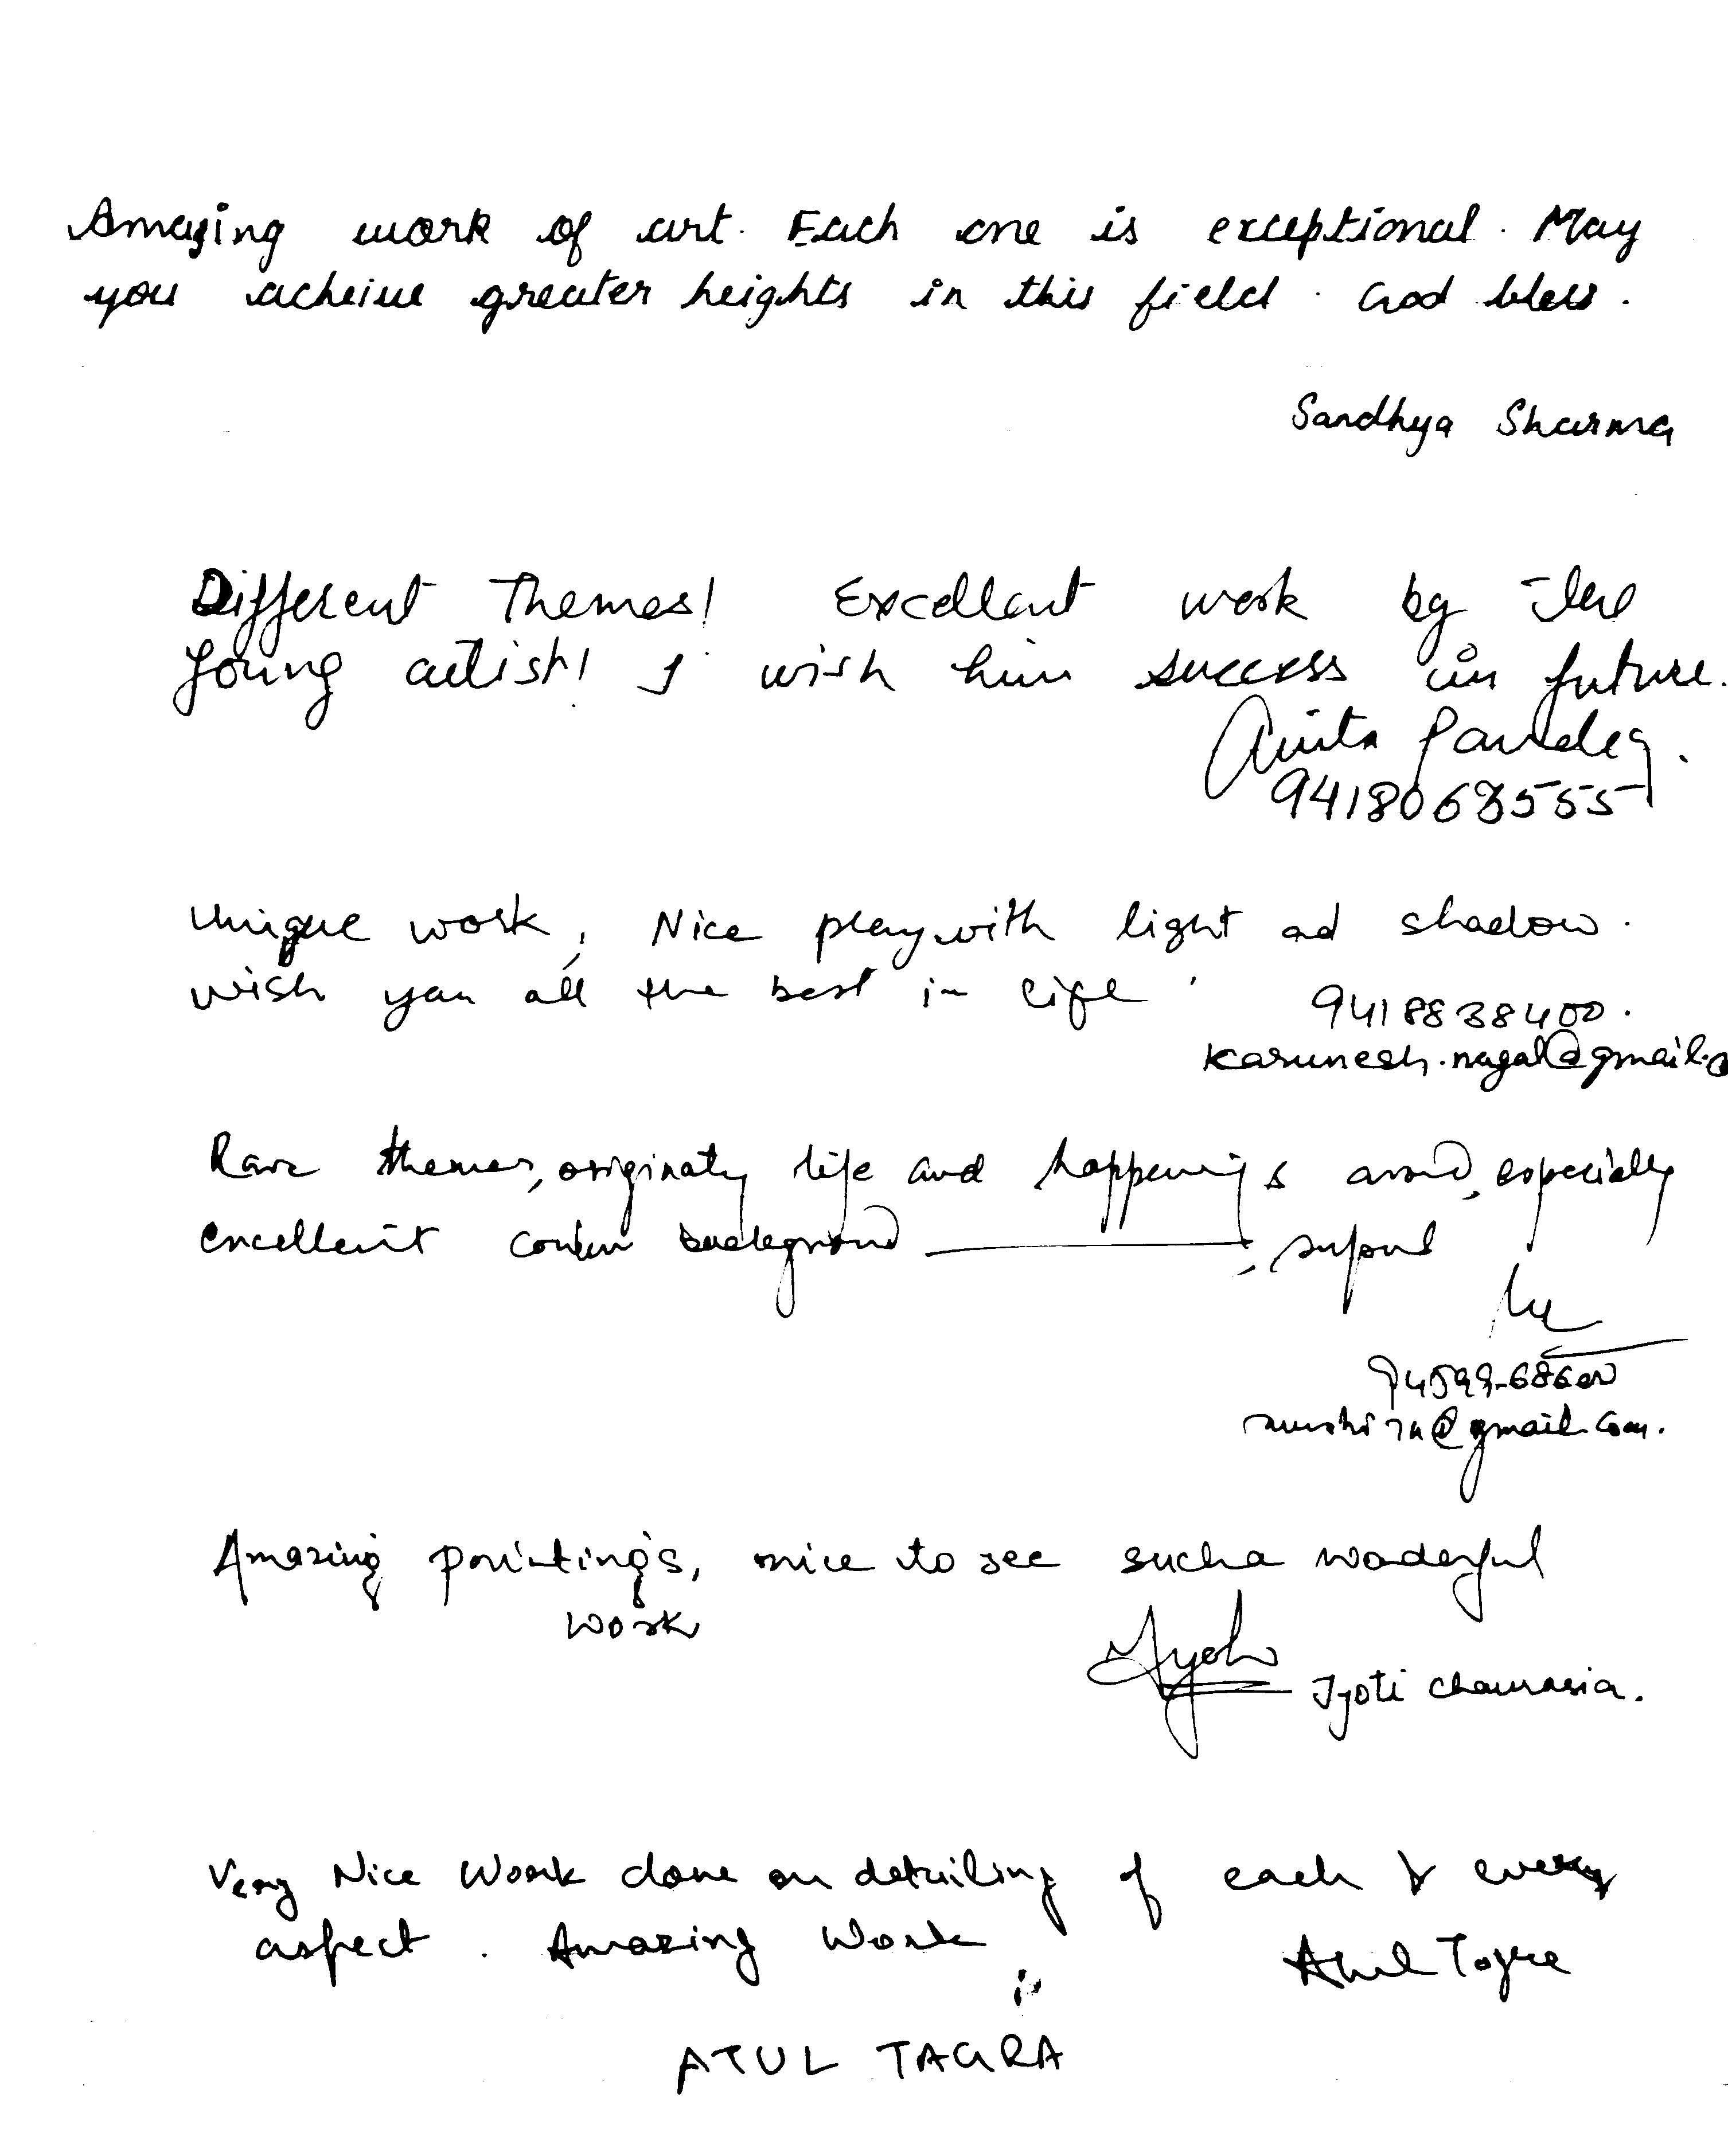 Amazing work of art. Each one is exceptional. May
you acheive greater heights in this field. God bless.
Sandhya Sharma
Different Themes! Excellent work by the
young artist! I wish him success in future.
Anita Pandey.
9418068555
Unique work, Nice play with light ad shadow.
wish you all the best in life.
9418838400.
karunesh.nagal@gmail.c
Rare themes, originaty life and happenings around, especially
excellent background, superb
@gmail.com.
Amazing painting's, nice to see such a woderful
work
Jyoti
Jyoti Chaurasia.
Very Nice Work done on detailing of each & every
aspect. Amazing Work
Atul Tagra
ATUL TAGRA